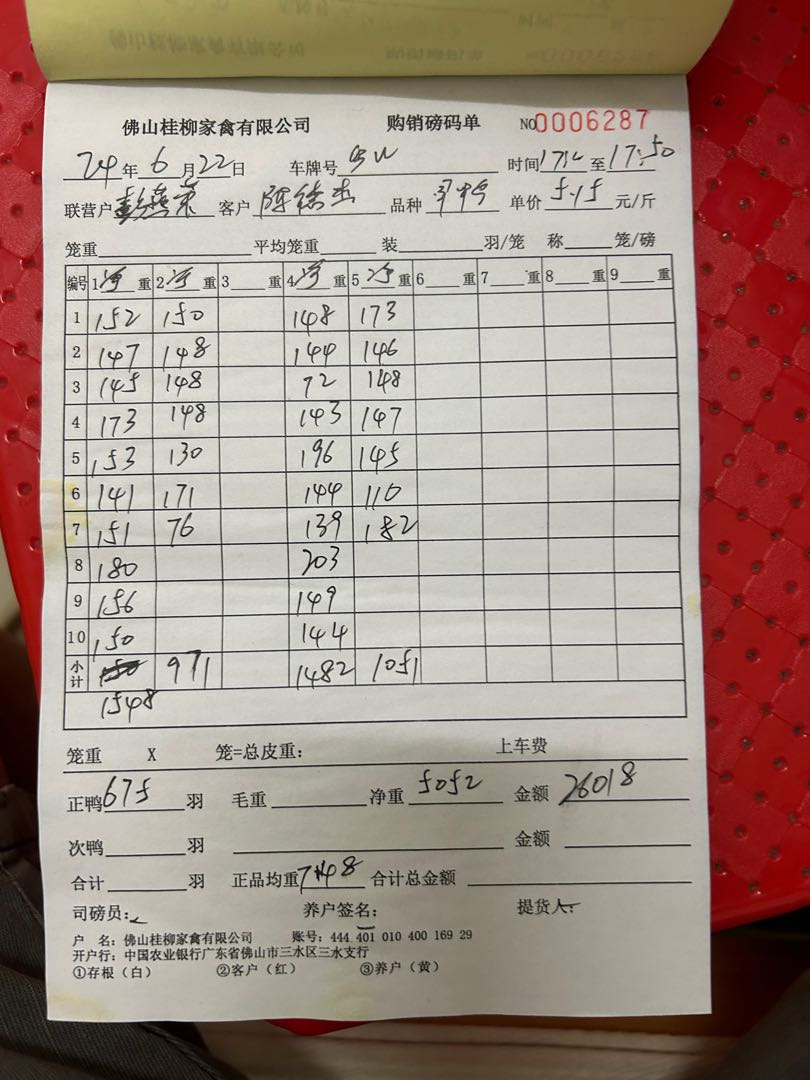 佛山桂柳家禽有限公司 购销磅码单 NO 0006287
24年6月22日 车牌号 时间 至17:50
联营户彭燕 客户陈 品种 单价5.15元/斤
笼重 平均笼重 装 羽/笼 称 笼/磅
编号 1净重 2净重 3重 4净重 5净重 6重 7重 8重 9重
1 152 150 148 173
2 147 148 144 146
3 145 148 72 148
4 173 148 143 147
5 153 130 196 145
6 141 171 144 110
7 151 76 139 182
8 180 203
9 156 149
10 150 144
小计 971 1482 1051
1548
笼重 X 笼=总皮重: 上车费
正鸭675羽 毛重 净重5052 金额26018
次鸭 羽 金额
合计 羽 正品均重7.48 合计总金额
司磅员: 养户签名: 提货人:
户 名: 佛山桂柳家禽有限公司 账号: 444 401 010 400 169 29
开户行: 中国农业银行广东省佛山市三水区三水支行
①存根(白) ②客户(红) ③养户(黄)